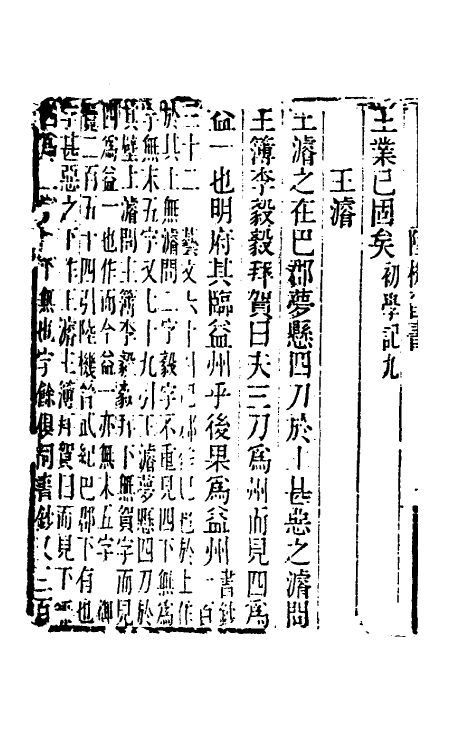 王業已固矣初學記九
王濬
王濬之在巴郡夢懸四刀於上甚惡之濬問
主簿李毅毅拜賀曰夫三刀爲州而見四爲
益一也明府其臨益州乎後果爲益州書鈔一百
三十二 藝文六十
於其上無濬問二字毅字不重見四下無爲
字無末五字又七十九引王濬夢懸四刀於
其壁上濬問主簿李毅毅拜下無賀字而見
四爲益一也作而今益一亦無末五字 御
覽二百五十四引陸機晉武紀巴郡下有也
字甚惡之下作王濬主簿拜賀曰而見下
無也字餘俱同書鈔